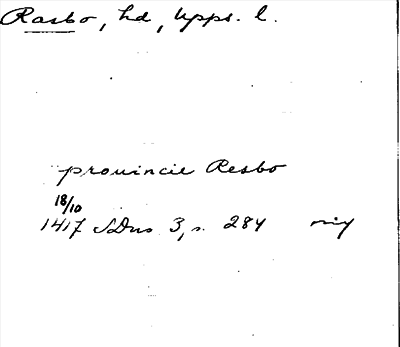 Rasbo, hd, Upps. l.
prouincie Resbo
18/10
1417 SDns 3, s. 284 orig